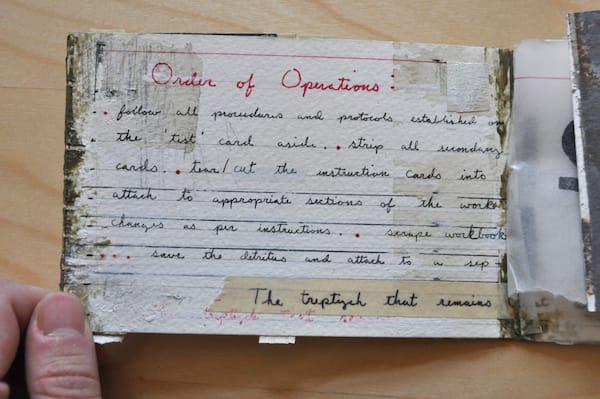 Order of Operations:
• follow all procedures and protocols established on
the 'test' card aside. • strip all secondary
cards. • tear/cut the instruction cards into
attach to appropriate sections of the work
changes as per instructions. • scrape workbook
• • • save the detritus and attach to a sep
The treptych that remains
treptych test